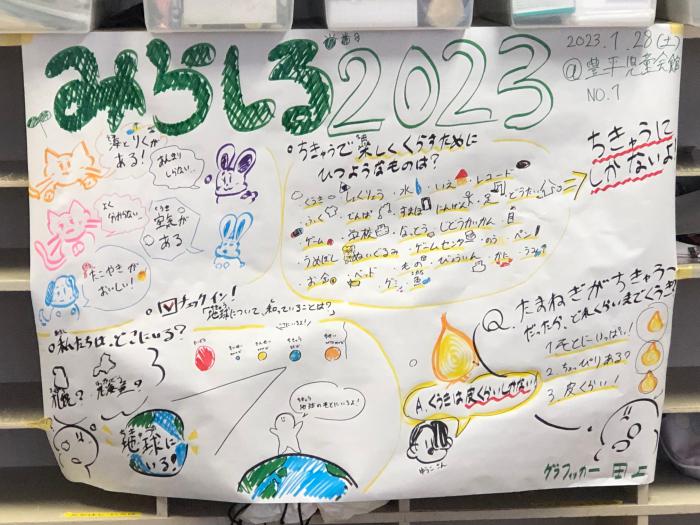 みらしる2023
2023.1.28(土)
@豊平児童会館
NO.1
海とりくが
ある!
あんまり
しらない…
よく
分からない
空気が
ある
たこやきが
おいしい!
チェックイン!
「地球について、知っていることは?」
ちきゅうで楽しくくらすために
ひつようなものは?
くうき
しょくりょう
水
いえ
ふく
でんぱ
すまほ
にんげん
ゲーム
学校
なっとう
じどうかいかん
うめぼし
ぬいぐるみ
ゲームセンター
のう
ペン!
お金
ベッド
びょういん
ちきゅうに
しかないよ
私たちは、どこにいる?
札幌?
北海道?
地球に
いる!
地球のそとにいるよ!
Q.たまねぎがちきゅう
だったら、どれくらいまでくうき
1.そとにいっぱい!
2.ちょっぴりある?
3.皮くらい!
A.くうきは皮くらいしかない!
ゆうこさん
グラフィッカー 田上